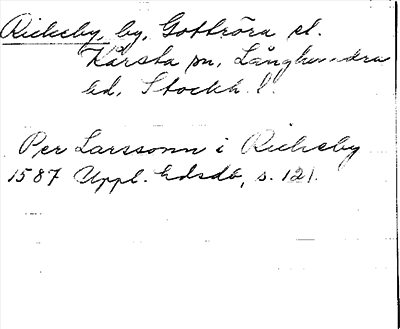 Rickeby, by, Gottröra el.
Kårsta sn, Långhundra
hd, Stockh. l.
Per Larssonn i Rickeby
1587 Uppl. hdsdb, s. 121.